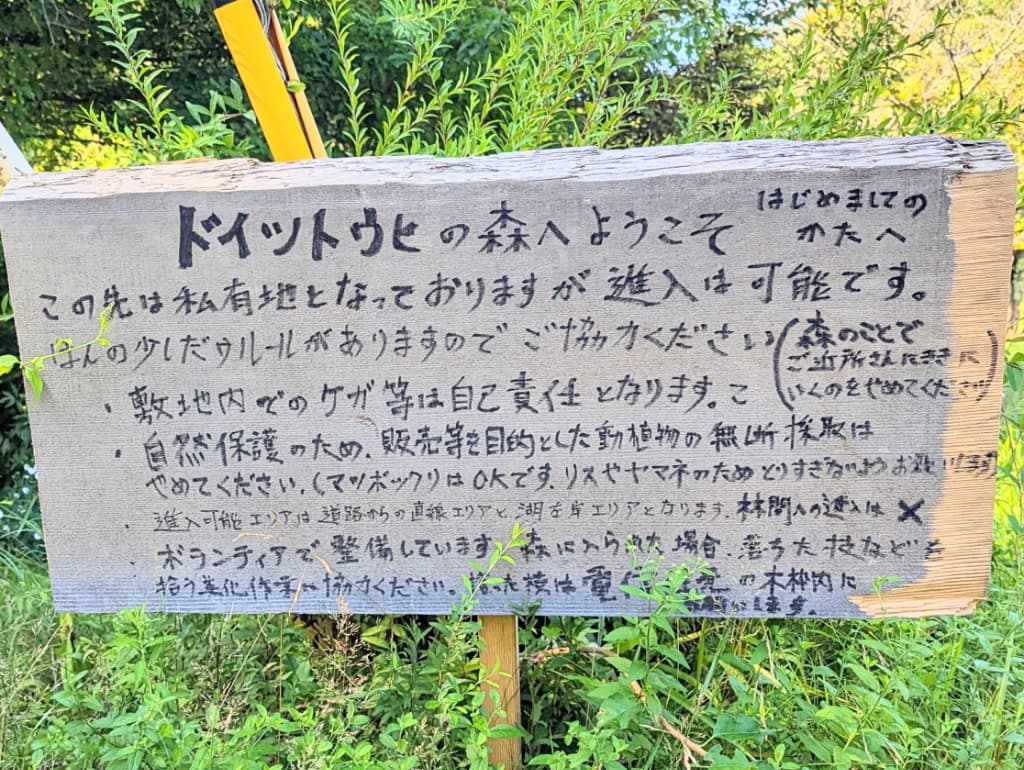 ドイツトウヒの森へようこそ
はじめましての
かたへ
この先は私有地となっておりますが進入は可能です。
ほんの少しだけルールがありますのでご協力ください
(森のことで
ご近所さんにききに
いくのをやめてください)
・敷地内でのケガ等は自己責任となります。
・自然保護のため、販売等を目的とした動植物の無断採取は
やめてください。(マツボックリはOKです。リスやヤマネのためとりすぎないようお願いします)
・進入可能エリアは道路からの直線エリアと、湖左岸エリアとなります。林間への進入は×
・ボランティアで整備しています。森に入られた場合、落ちた枝などを
拾う美化作業へ協力ください。った枝は の木枠内に